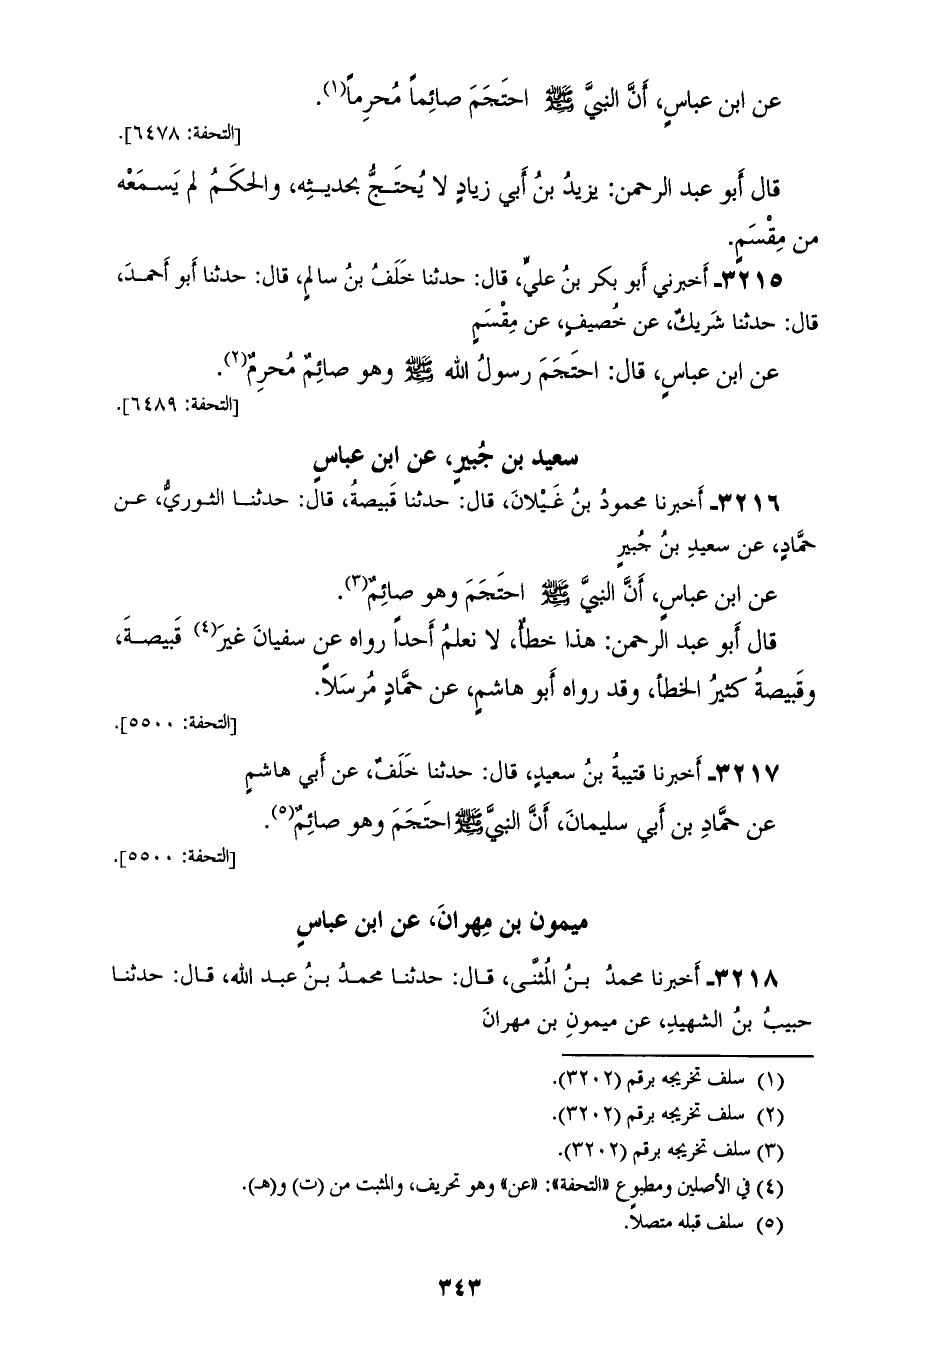 عن ابن عباسٍ، أَنَّ النبيَّ ﷺ احتَجَمَ صائِماً مُحرِماً(١).
[التحفة: ٦٤٧٨].
قال أَبو عبد الرحمن: يزيدُ بنُ أَبي زيادٍ لا يُحتَجُّ بحديثِه، والحكَمُ لم يَسمَعْه
من مِقْسَمٍ.
٣٢١٥ـ أَخبرني أَبو بكر بنُ عليٍّ، قال: حدثنا خَلَفُ بنُ سالمٍ، قال: حدثنا أَبو أَحمدَ،
قال: حدثنا شَريكٌ، عن خُصيفٍ، عن مِقْسَمٍ
عن ابن عباسٍ، قال: احتَجَمَ رسولُ الله ﷺ وهو صائِمٌ مُحرِمٌ(٢).
[التحفة: ٦٤٨٩].
سعيد بن جُبيرٍ، عن ابن عباسٍ
٣٢١٦ـ أَخبرنا محمودُ بنُ غَيْلانَ، قال: حدثنا قَبيصةُ، قال: حدثنا الثوريُّ، عن
حمَّادٍ، عن سعيدِ بنُ جُبيرٍ
عن ابن عباسٍ، أَنَّ النبيَّ ﷺ احتَجَمَ وهو صائِمٌ(٣).
قال أَبو عبد الرحمن: هذا خطأٌ، لا نعلمُ أَحداً رواه عن سفيانَ غيرَ(٤) قَبيصةَ،
وقَبيصةُ كثيرُ الخطأ، وقد رواه أَبو هاشمٍ، عن حمَّادٍ مُرسَلاً.
[التحفة: ٥٥٠٠].
٣٢١٧ـ أَخبرنا قتيبةُ بنُ سعيدٍ، قال: حدثنا خَلَفٌ، عن أَبي هاشمٍ
عن حمَّادِ بن أَبي سليمانَ، أَنَّ النبيَّ ﷺ احتَجَمَ وهو صائِمٌ(٥).
[التحفة: ٥٥٠٠].
ميمون بن مِهرانَ، عن ابن عباسٍ
٣٢١٨ـ أَخبرنا محمدُ بنُ المُثنَّى، قال: حدثنا محمدُ بنُ عبد الله، قال: حدثنا
حبيبُ بنُ الشهيدِ، عن ميمونِ بن مهرانَ
(١) سلف تخريجه برقم (٣٢٠٢).
(٢) سلف تخريجه برقم (٣٢٠٢).
(٣) سلف تخريجه برقم (٣٢٠٢).
(٤) في الأصلين ومطبوع «التحفة»: «عن» وهو تحريف، والمثبت من (ت) و(هـ).
(٥) سلف قبله متصلاً.
٣٤٣